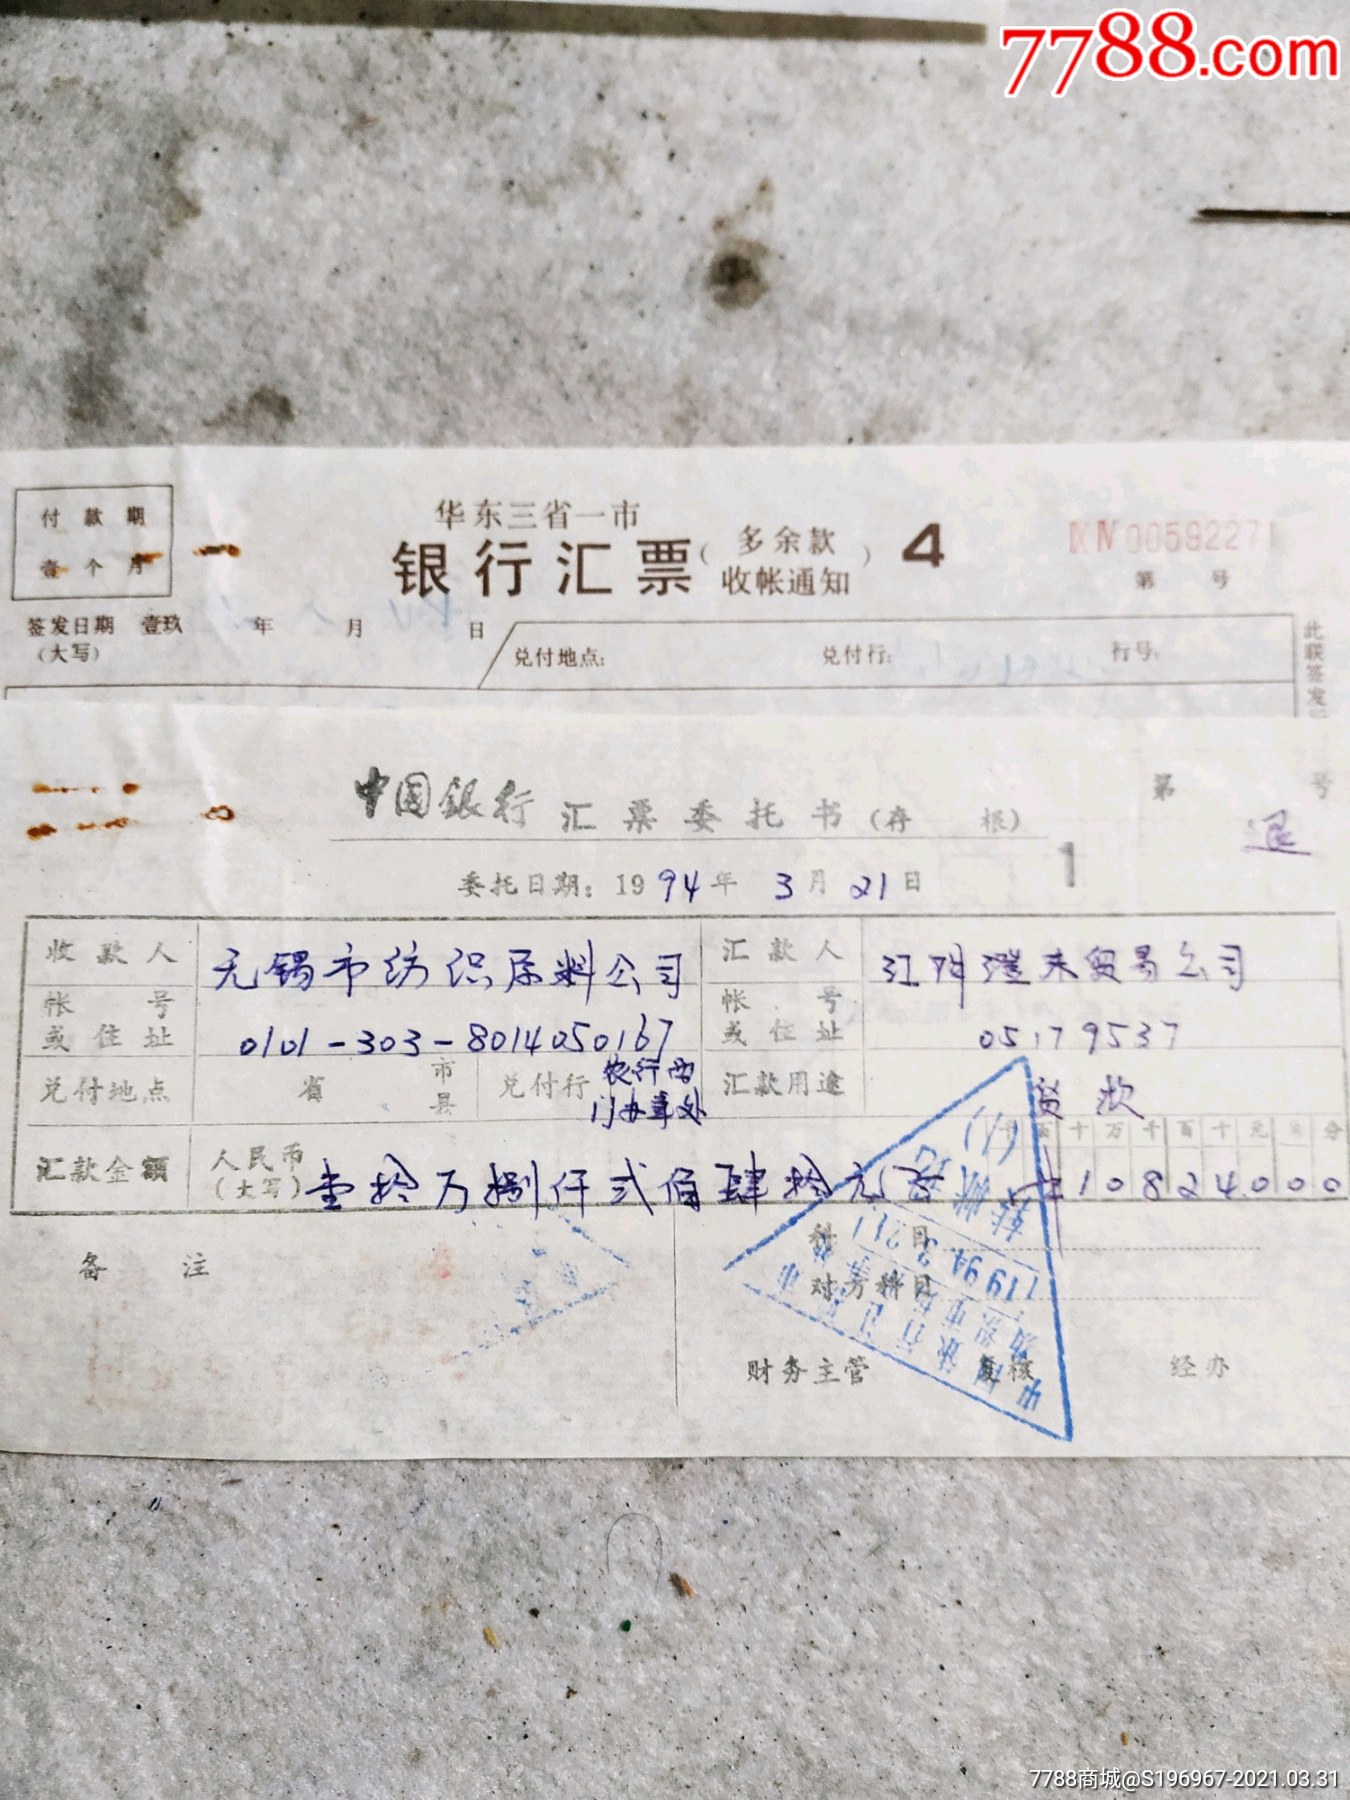 7788.com
付款期
壹个月
华东三省一市
银行汇票(多余款收帐通知) 4
IX IV 00592271
第 号
签发日期 壹玖 年 月 日
(大写)
兑付地点: 兑付行: 行号:
此联签发
中国银行 汇票委托书(存 根) 1
第 号
退
委托日期: 1994年 3月 21日
收款人 无锡市纺织原料公司
汇款人 贸易公司
帐号或住址 0101-303-8014050167
帐号或住址 05179537
兑付地点 省 市县 兑付行 农行西门办事处
汇款用途 货款
汇款金额 人民币(大写) 壹拾万捌仟贰佰肆拾元正
千百十万千百十元角分
10824000
备注
科 目
对方科目
转帐
1994.3.21
财务主管 复核 经办
7788商城@S196967-2021.03.31